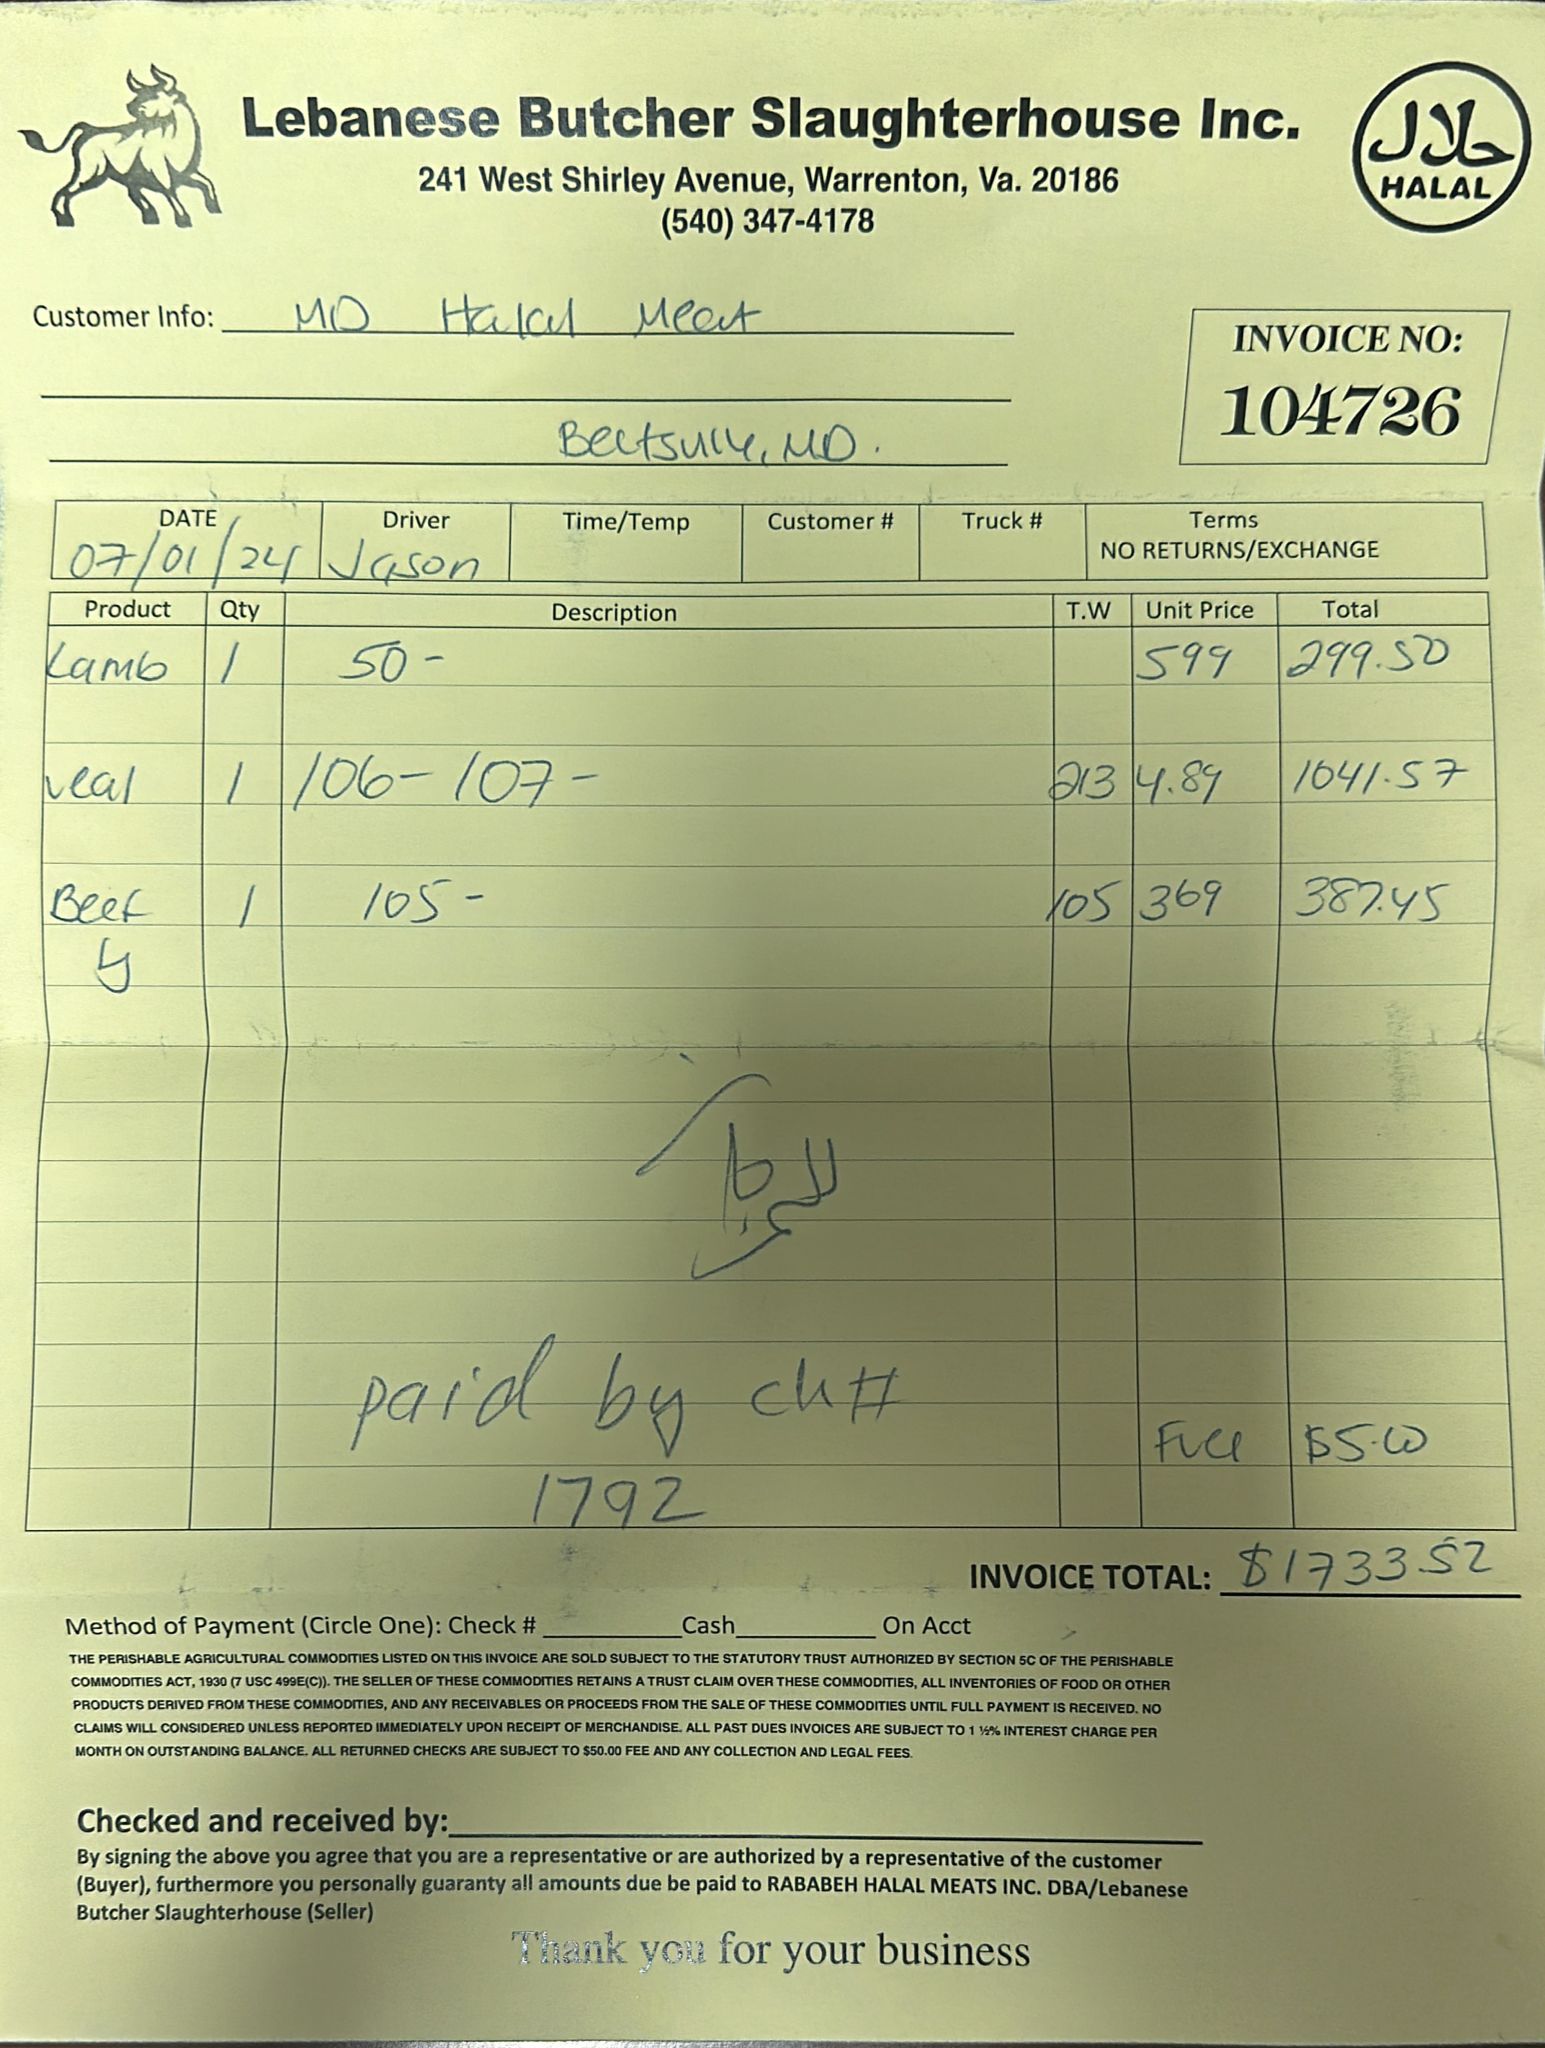 Lebanese Butcher Slaughterhouse Inc.
241 West Shirley Avenue, Warrenton, Va. 20186
(540) 347-4178
حلال
HALAL
Customer Info: MD Halal Meat
INVOICE NO:
104726
Beltsville, MD.
DATE Driver Time/Temp Customer # Truck # Terms
07/01/24 Jason NO RETURNS/EXCHANGE
Product Qty Description T.W Unit Price Total
Lamb 1 50- 599 299.50
veal 1 106- 107- 213 4.89 1041.57
Beef 1 105- 105 369 387.45
paid by ch#
Fuel $5.00
1792
INVOICE TOTAL: $1733.52
Method of Payment (Circle One): Check # Cash On Acct
THE PERISHABLE AGRICULTURAL COMMODITIES LISTED ON THIS INVOICE ARE SOLD SUBJECT TO THE STATUTORY TRUST AUTHORIZED BY SECTION 5C OF THE PERISHABLE
COMMODITIES ACT, 1930 (7 USC 499E(C)). THE SELLER OF THESE COMMODITIES RETAINS A TRUST CLAIM OVER THESE COMMODITIES, ALL INVENTORIES OF FOOD OR OTHER
PRODUCTS DERIVED FROM THESE COMMODITIES, AND ANY RECEIVABLES OR PROCEEDS FROM THE SALE OF THESE COMMODITIES UNTIL FULL PAYMENT IS RECEIVED. NO
CLAIMS WILL CONSIDERED UNLESS REPORTED IMMEDIATELY UPON RECEIPT OF MERCHANDISE. ALL PAST DUES INVOICES ARE SUBJECT TO 1 ½% INTEREST CHARGE PER
MONTH ON OUTSTANDING BALANCE. ALL RETURNED CHECKS ARE SUBJECT TO $50.00 FEE AND ANY COLLECTION AND LEGAL FEES.
Checked and received by:
By signing the above you agree that you are a representative or are authorized by a representative of the customer
(Buyer), furthermore you personally guaranty all amounts due be paid to RABABEH HALAL MEATS INC. DBA/Lebanese
Butcher Slaughterhouse (Seller)
Thank you for your business